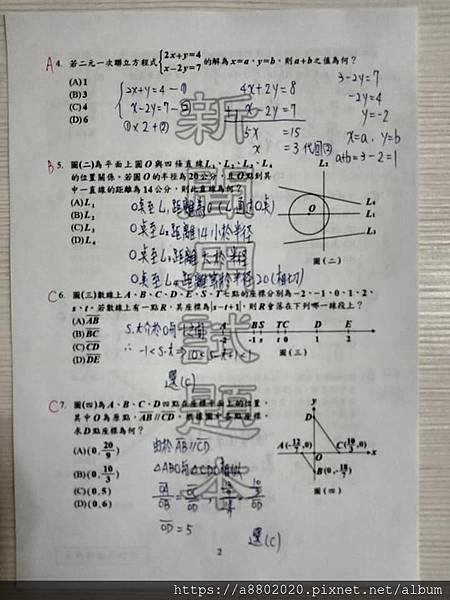 A 4. 若二元一次聯立方程式{2x+y=4 x−2y=7 的解為x=a、y=b,則a+b之值為何?
(A) 1
(B) 3
(C) 4
(D) 6
2x+y=4 —①
x−2y=7 —②
①×2+②
4x+2y=8
+) x−2y=7
5x =15
x =3 代回②
3−2y=7
−2y=4
y=−2
x=a、y=b
a+b=3−2=1
B 5. 圖(二)為平面上圓O與四條直線L1、L2、L3、L4
的位置關係。若圓O的半徑為20公分,且O點到其
中一直線的距離為14公分,則此直線為何?
(A) L1
(B) L2
(C) L3
(D) L4
O點至L1距離為0 (L1通過O點)
O點至L2距離14小於半徑
O點至L3距離大於半徑
O點至L4距離等於半徑20(相切)
L2
O
L4
L1
L3
圖(二)
C 6. 圖(三)數線上A、B、C、D、E、S、T七點的座標分別為−2、−1、0、1、2、
s、t。若數線上有一點R,其座標為|s−t+1|,則R會落在下列哪一線段上?
(A) AB
(B) BC
(C) CD
(D) DE
∴ −1<s−t<0
0<s−t+1<1
選(C)
A B S T C D E
−2 −1 s t 0 1 2
圖(三)
C 7. 圖(四)為A、B、C、D四點在座標平面上的位置,
其中O為原點,AB // CD。根據圖中各點座標,
求D點座標為何?
(A) (0, 20/9)
(B) (0, 10/3)
(C) (0, 5)
(D) (0, 6)
由於AB//CD
△ABO與△CDO相似
OA/OB = OC/OD
OD = 5
選(C)
y
D
A(−12/7, 0)
C(10/3, 0)
x
O
B(0, −18/7)
圖(四)
新聞周試題本
2
https://a8802020.pixnet.net/album